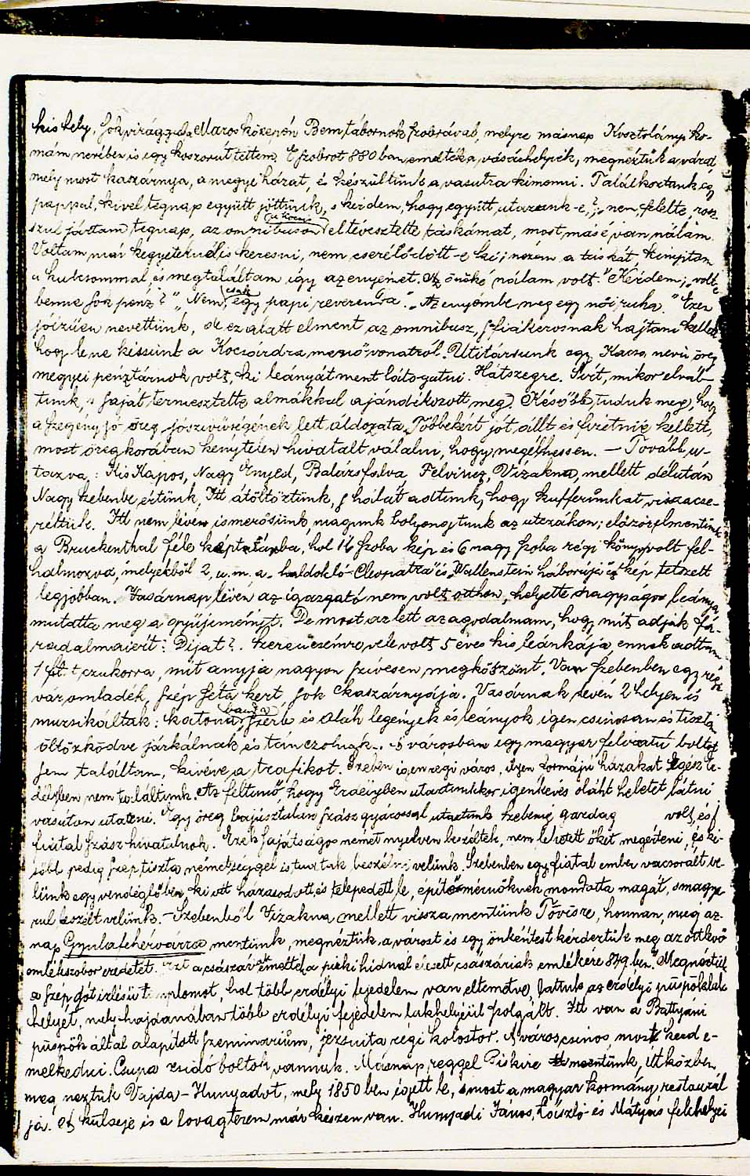 kis hely, sok virággal a Maros közepén Bem tábornok szobrával, melyre másnap Kosztolányi ko-
mám nevében is egy koszorut tettem. E szobrot 880 ban emelték a vásárhelyiek, megnéztük a várat
mely most kaszárnya, a megye házat, és készültünk a vasutra kimenni. Találkoztunk egy
pappal, kivel tegnap együtt jöttünk, s kérdem, hogy együtt utazunk-e? nem felelte, rosz-
szul jártam tegnap, az omnibuson elteveszté táskámat, most másé van nálam.
Voltam már kegyiteknél is keresni, nem cserélődött-e ki; nézem a táskát, kinyitom
a kulcsommal, és megtaláltam így az enyémet. Az önöké nálam volt." Kérdem; volt-e
benne sok pénz? "Nem, csak egy papi reverenda." "Az enyémbe meg egy női ruha." Ezen
jóizüen nevettünk, de ez alatt elment az omnibusz, s fiákerosnak hajtani kellet
hogy le ne késsünk a Kocsárdra menő vonatról. Utitársunk egy Kacso nevü öreg
megyei pénztárnok volt, ki leányát ment látogatni Hátszegre. Sirt, mikor elvál-
tunk, s saját termesztette almákkal ajándékozott meg. Később tudtuk meg, hogy
a szegény jó öreg jószivüségének lett áldozata. Többekért jót állt és fizetnie kellett,
most öreg korában kénytelen hivatalt vállalni, hogy megélhessen. — Tovább u-
tazva: Kis Kapos, Nagy Enyed, Balázsfalva Felvincz, Vizakna mellett délután
Nagy Szebenbe értünk, Itt átöltöztünk, s hálát adtunk, hogy kufferünkat visszacse-
réltük. Itt nem lévén ismerősünk magunk bolyongtunk az utczákon; először elmentünk
a Bruckenthal féle képtárba, hol 14 szoba kép és 6 nagy szoba régi könyv volt fel-
halmozva, melyekből 2, u.m. a "haldokló Cleopatra" és "Wallenstein háborúja" kép tetszett
legjobban. Vasárnap lévén az igazgató nem volt otthon, helyette nagyságos leánya
mutatta meg a gyüjteményt. De most az lett az agodalmam, hogy mit adjak fá-
radalmaiért: Dijat? Szerencsémre vele volt 5 éves kis leánkája, ennek adtam
1 ft.t czukorra, mit anyja nagyon szivesen megköszönt. Van Szebenben egy régi
váromladék, szép séta kert, sok kaszárnyája. Vasárnak lévén 2 helyen is
muzsikáltak: katona banda szerte és oláh legények és leányok igen csinosan és tisztán
öltözködve járkálnak és tánczolnak. A városban egy magyar feliratú boltot
sem találtam, kivéve a trafikot. Szeben igen régi város, ilyen formáju házakat egész Er-
délyben nem találtunk. Az feltünő, hogy Erdélyben utaztunkkor igen kevés oláht lehetet látni
vasúton utazni. Egy öreg bajusztalan szász gyárossal utaztunk Szebenig gazdag volt, és 2
fiatal szász hivatalnok. Ezek sajátságos német nyelven beszéltek, nem lehetett őket megérteni, és ké-
sőbb pedig szép tiszta németséggel is tudtak beszélni velünk. Szebenben egy fiatal ember vacsorált ve-
lünk egy vendéglőben ki itt házasodott és telepedett le, épitő mérnöknek mondatta magát, s magya-
rul beszélt velünk. – Szebenből Vizakna mellett vissza mentünk Tövisre, honnan még az-
nap Gyulafehérvárra mentünk, megnéztük a várost és egy önkéntest kérdeztük meg az ottkvő
emlékszobor eredetét. Ezt a császár emeltette a piski hidnál elesett császáriak emlékére 849 ben. Megnéztük
a szép gót izlésü templomot, hol több erdélyi fejedelem van eltemetve, láttuk az erdélyi püspök lak-
helyét, mely hajdanában több erdélyi fejedelem lakhelyéül szolgált. Itt van a Battyáni
püspök által alapított szeminárium, jezsuita régi kolostor. A város csinos, most kezd e-
melkedni. Csupa zsidó boltok vannak. Másnap reggel Piskire mentünk, itt közben,
meg néztük Vajda-Hunyadot, mely 1850 ben égett le, s most a magyar kormány restaurál-
ja. A külseje és a lovagterem már készen van. Hunyadi János, László és Mátyás fekhelyei